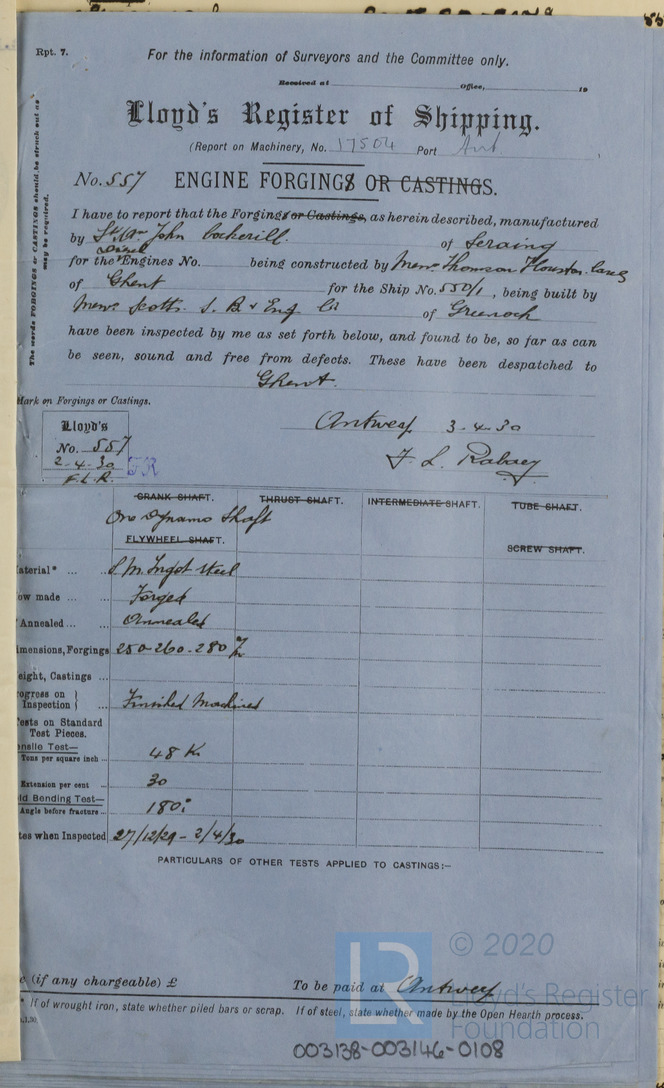 Rpt. 7.
For the information of Surveyors and the Committee only.
Received at Office, 19
Lloyd's Register of Shipping.
(Report on Machinery, No. 17504 Port Ant
No. 557 ENGINE FORGINGS OR CASTINGS.
The words FORGINGS or CASTINGS should be struck out as
may be required.
I have to report that the Forgings or Castings, as herein described, manufactured
by John Cockerill. of Seraing
Diesel
for the Engines No. being constructed by Messrs Thomson Houston Carels
of Ghent for the Ship No. 550/1, being built by
Messrs Scotts S. B & Eng Co of Greenock
have been inspected by me as set forth below, and found to be, so far as can
be seen, sound and free from defects. These have been despatched to
Ghent.
Mark on Forgings or Castings.
Lloyd's
No. 557
2-4-30
F.L.R.
FR
Antwerp 3-4-30
F. L. Rabaey
CRANK SHAFT. THRUST SHAFT. INTERMEDIATE SHAFT. TUBE SHAFT.
One Dynamo Shaft
FLYWHEEL SHAFT. SCREW SHAFT.
aterial* ... S. M. Ingot steel
ow made ... Forged
Annealed ... Annealed
imensions, Forgings 250-260-280 m/m
eight, Castings ...
ogress on
Inspection Finished Machined
ests on Standard
Test Pieces.
nsile Test—
Tons per square inch ... 48 K
Extension per cent ... 30
ld Bending Test—
Angle before fracture ... 180°
tes when Inspected 27/12/29 - 2/4/30
PARTICULARS OF OTHER TESTS APPLIED TO CASTINGS:—
© 2020
e (if any chargeable) £ To be paid at Antwerp
Lloyd's Register
Foundation
LR
* If of wrought iron, state whether piled bars or scrap. If of steel, state whether made by the Open Hearth process.
003138-003146-0108